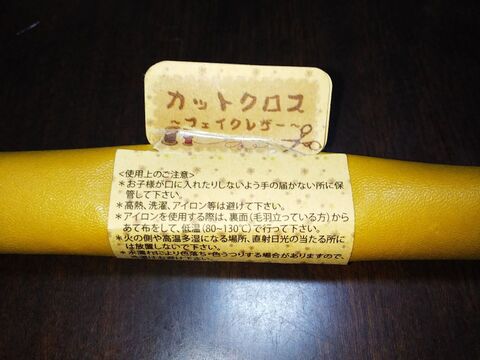 カットクロス
～フェイクレザー～
<使用上のご注意>
＊お子様が口に入れたりしないよう手の届かない所に保
管して下さい。
＊高熱、洗濯、アイロン等は避けて下さい。
＊アイロンを使用する際は、裏面(毛羽立っている方)から
あて布をして、低温(80～130℃)で行って下さい。
＊火の側や高温多湿になる場所、直射日光の当たる所に
は放置しないで下さい。
＊水濡れにより色落ち・色うつりする場合がありますので、